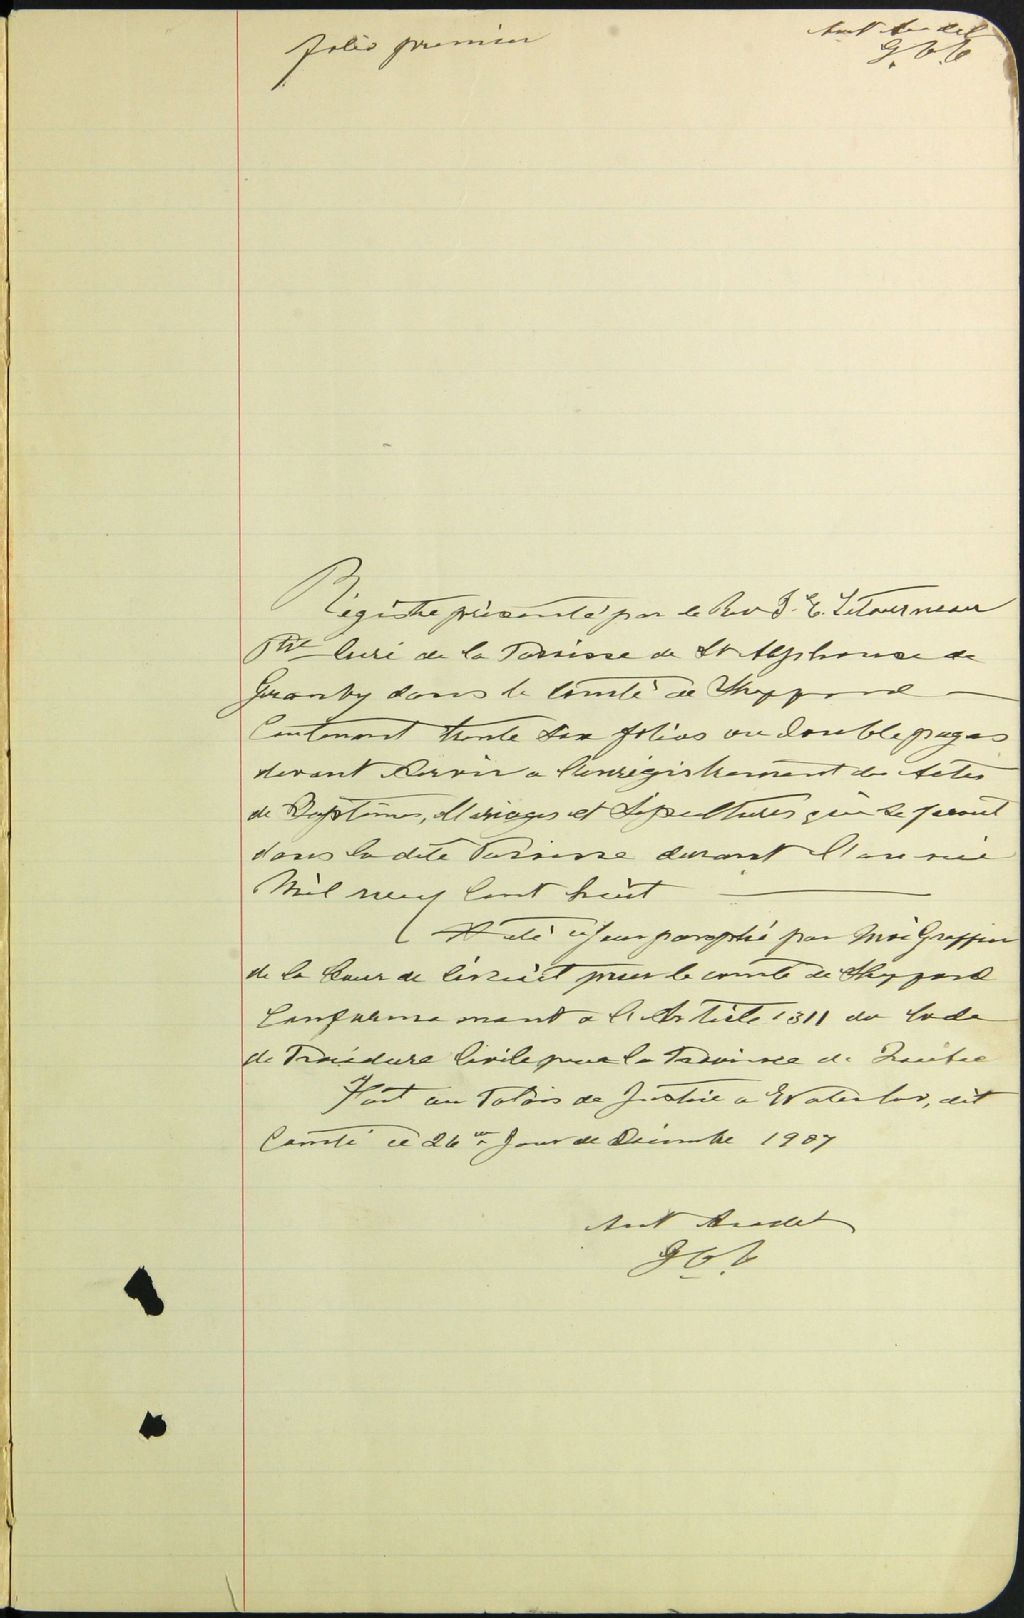 folio premier
G. C. C.
Régistre présenté par le Rev J. E. Letourneau
Ptre Curé de la Paroisse de St Alphonse de
Granby dans le comté de Shefford
Contenant trente six folios ou double pages
devant servir a l'enrégistrement des Actes
de Baptêmes, Mariages et Sépultures qui se feront
dans la dite Paroisse durant l'année
Mil neuf cent huit
A été ce jour paraphé par moi Greffier
de la Cour de Circuit pour le comté de Shefford
Conformement a l'Article 1311 du Code
de Procédure Civile pour la Province de Quebec
Fait au Palais de Justice a Waterloo, dit
Comté ce 26me Jour de Décembre 1907
G C C